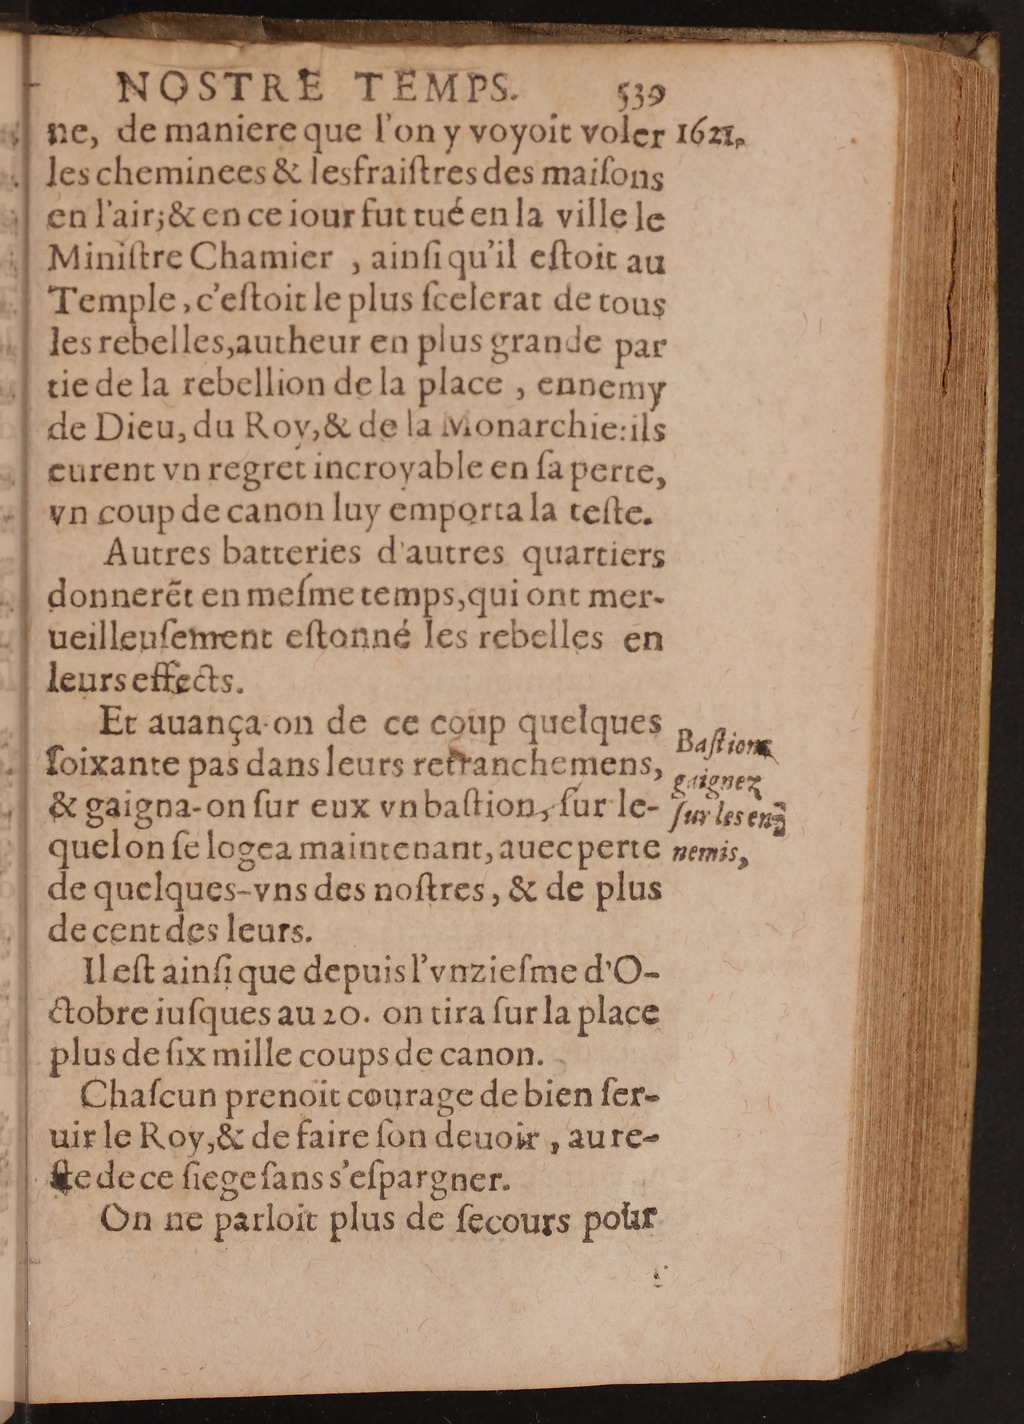 NOSTRE TEMPS. 539
ne, de maniere que l'on y voyoit voler 1621.
les cheminees & les fraiſtres des maiſons
en l'air; & en ce iour fut tué en la ville le
Miniſtre Chamier , ainſi qu'il eſtoit au
Temple, c'eſtoit le plus ſcelerat de tous
les rebelles, autheur en plus grande par
tie de la rebellion de la place , ennemy
de Dieu, du Roy, & de la Monarchie: ils
eurent vn regret incroyable en ſa perte,
vn coup de canon luy emporta la teſte.
Autres batteries d'autres quartiers
donnerēt en meſme temps, qui ont mer-
ueilleuſement eſtonné les rebelles en
leurs effects.
Et auança-on de ce coup quelques
ſoixante pas dans leurs retranchemens,
& gaigna-on ſur eux vn baſtion, ſur le-
quel on ſe logea maintenant, auec perte
de quelques-vns des noſtres, & de plus
de cent des leurs.
Baſtions
gaignez
ſur les en-
nemis,
Il eſt ainſi que depuis l'vnzieſme d'O-
ctobre iuſques au 20. on tira ſur la place
plus de ſix mille coups de canon.
Chaſcun prenoit courage de bien ſer-
uir le Roy, & de faire ſon deuoir , au re-
ſte de ce ſiege ſans s'eſpargner.
On ne parloit plus de ſecours pour